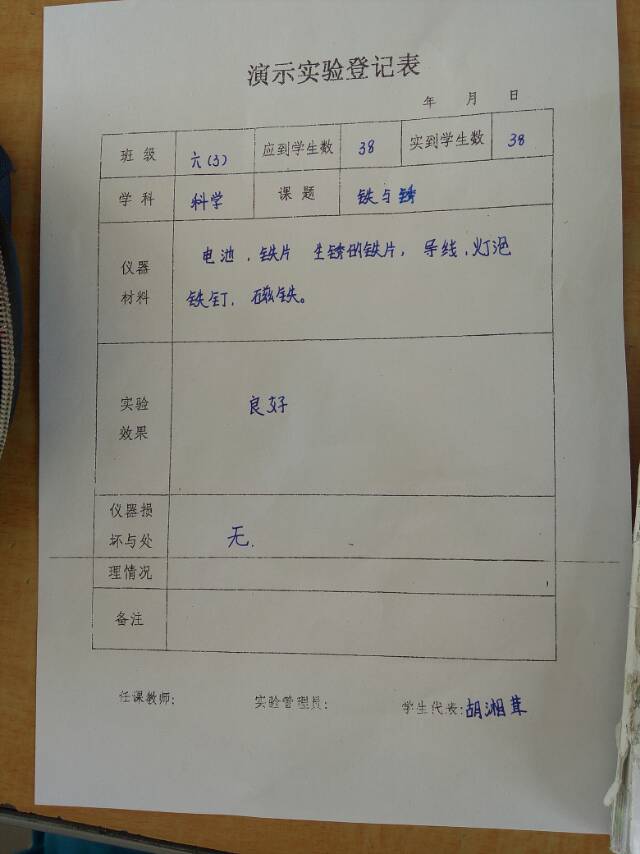 演示实验登记表
年 月 日
班 级 六(3) 应到学生数 38 实到学生数 38
学 科 科学 课 题 铁与锈
仪器 电池、铁片 生锈的铁片, 导线、灯泡
材料 铁钉、磁铁。
实验 良好
效果
仪器损
坏与处 无.
理情况
备注
任课教师: 实验管理员: 学生代表:胡湘茸